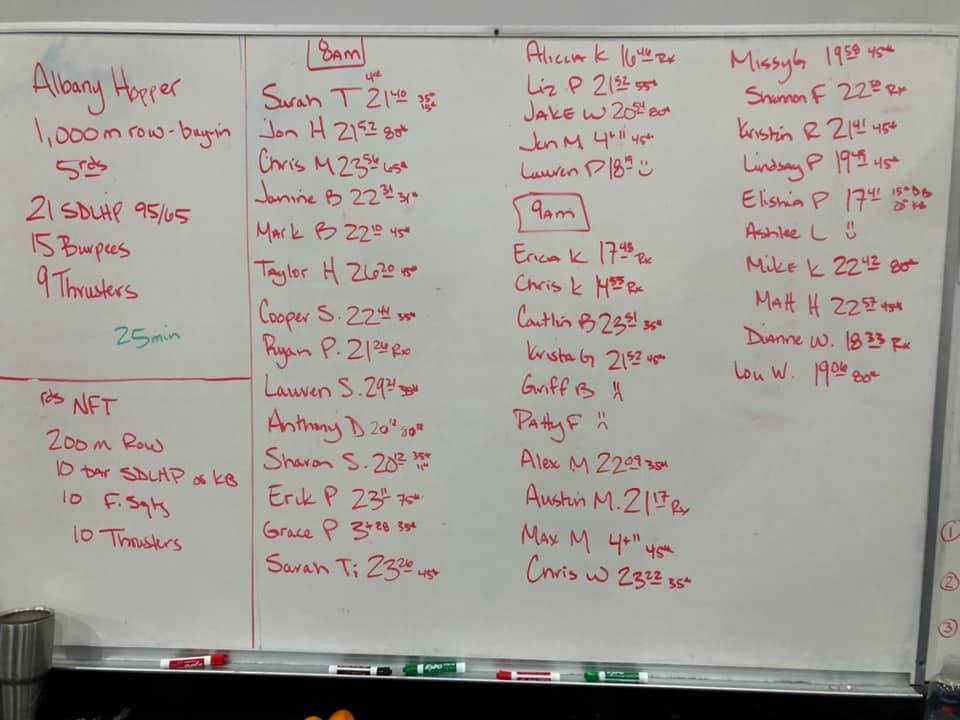 Albany Hopper
1,000m row - buy-in
5 rds
21 SDLHP 95/65
15 Burpees
9 Thrusters
25 min
rds NFT
200 m Row
10 bar SDLHP or KB
10 F. Sqts
10 Thrusters
8AM
Sarah T 21 40 35# 15#
Jon H 21 52 80#
Chris M 23 56 65#
Janine B 22 31
Mark B 22 10 45#
Taylor H 26 20 45#
Cooper S. 22 44 35#
Ryan P. 21 26 Rx
Lauren S. 29 21 35#
Anthony D 20 12 80#
Sharon S. 20 12 35#
Erik P 23 11 75#
Grace P 3+28 35#
Sarah Ti 23 26 45#
Alicia K 16 46 Rx
Liz P 21 52 55#
Jake W 20 54 80#
Jen M 4+11 45#
Lauren P 18 19 :)
9am
Erica K 17 48 Rx
Chris K Rx
Caitlin B 23 51 35#
Krista G 21 52 45#
Griff B
Patty F
Alex M 22 09 35#
Austin M. 21 17 Rx
Max M 4+11 45#
Chris W 23 22 35#
Missy G 19 58 45#
Shannon F 22 30 Rx
Kristin R 21 41 45#
Lindsay P 19 49 45#
Elishia P 17 41 15# DB 25# KB
Ashlee L :)
Mike K 22 42 80#
Matt H 22 57 45#
Dianne W. 18 33 Rx
Lou W. 19 06 80#
1
2
3